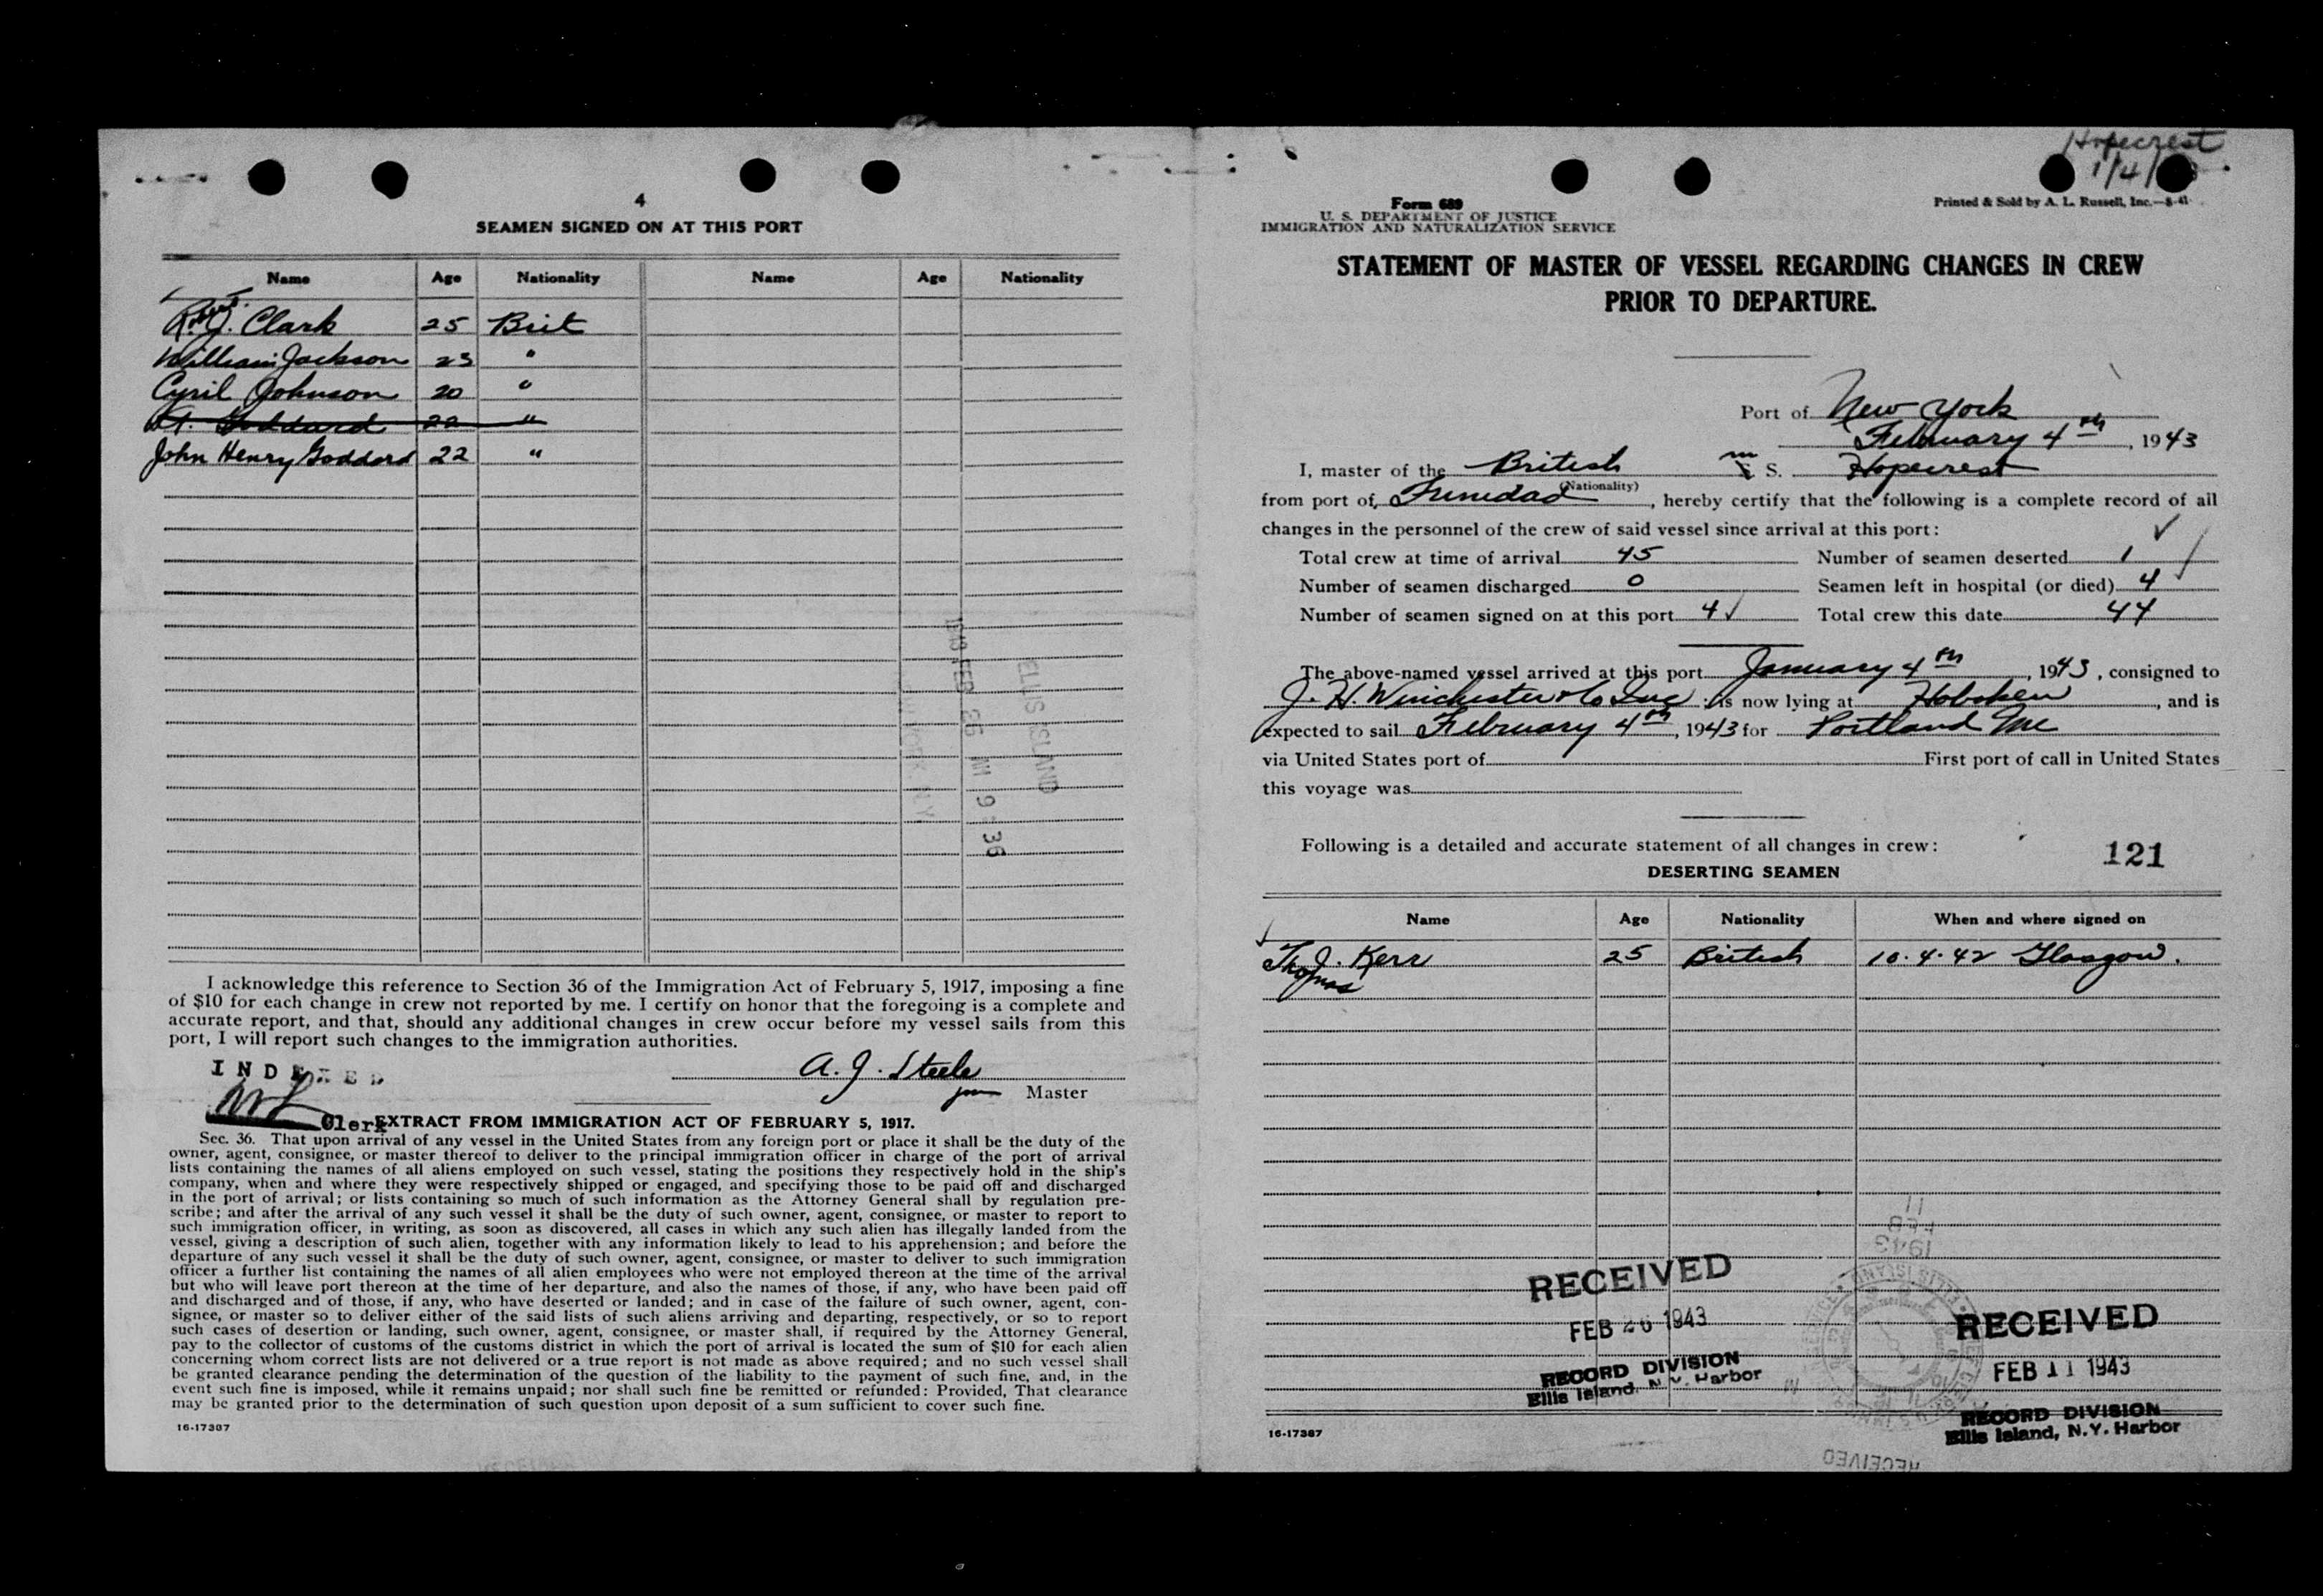 4
SEAMEN SIGNED ON AT THIS PORT
Name Age Nationality Name Age Nationality
Robt. J. Clark 25 Brit
William Jackson 23 "
Cyril Johnson 20 "
Goddard 22 "
John Henry Goddard 22 "
1943 FEB 26 AM 9:36
ELLIS ISLAND
I acknowledge this reference to Section 36 of the Immigration Act of February 5, 1917, imposing a fine
of $10 for each change in crew not reported by me. I certify on honor that the foregoing is a complete and
accurate report, and that, should any additional changes in crew occur before my vessel sails from this
port, I will report such changes to the immigration authorities.
INDEXED
A. J. Steele
Master
Clerk
EXTRACT FROM IMMIGRATION ACT OF FEBRUARY 5, 1917.
Sec. 36. That upon arrival of any vessel in the United States from any foreign port or place it shall be the duty of the
owner, agent, consignee, or master thereof to deliver to the principal immigration officer in charge of the port of arrival
lists containing the names of all aliens employed on such vessel, stating the positions they respectively hold in the ship's
company, when and where they were respectively shipped or engaged, and specifying those to be paid off and discharged
in the port of arrival; or lists containing so much of such information as the Attorney General shall by regulation pre-
scribe; and after the arrival of any such vessel it shall be the duty of such owner, agent, consignee, or master to report to
such immigration officer, in writing, as soon as discovered, all cases in which any such alien has illegally landed from the
vessel, giving a description of such alien, together with any information likely to lead to his apprehension; and before the
departure of any such vessel it shall be the duty of such owner, agent, consignee, or master to deliver to such immigration
officer a further list containing the names of all alien employees who were not employed thereon at the time of the arrival
but who will leave port thereon at the time of her departure, and also the names of those, if any, who have been paid off
and discharged and of those, if any, who have deserted or landed; and in case of the failure of such owner, agent, con-
signee, or master so to deliver either of the said lists of such aliens arriving and departing, respectively, or so to report
such cases of desertion or landing, such owner, agent, consignee, or master shall, if required by the Attorney General,
pay to the collector of customs of the customs district in which the port of arrival is located the sum of $10 for each alien
concerning whom correct lists are not delivered or a true report is not made as above required; and no such vessel shall
be granted clearance pending the determination of the question of the liability to the payment of such fine, and, in the
event such fine is imposed, while it remains unpaid; nor shall such fine be remitted or refunded: Provided, That clearance
may be granted prior to the determination of such question upon deposit of a sum sufficient to cover such fine.
16-17387
Hopecrest
1/4/
Form 689
U. S. DEPARTMENT OF JUSTICE
IMMIGRATION AND NATURALIZATION SERVICE
Printed & Sold by A. L. Russell, Inc.—8-41
STATEMENT OF MASTER OF VESSEL REGARDING CHANGES IN CREW
PRIOR TO DEPARTURE.
Port of New York
February 4th, 1943
I, master of the British m S. Hopecrest
(Nationality)
from port of Trinidad, hereby certify that the following is a complete record of all
changes in the personnel of the crew of said vessel since arrival at this port:
Total crew at time of arrival 45 Number of seamen deserted 1
Number of seamen discharged 0 Seamen left in hospital (or died) 4
Number of seamen signed on at this port 4 Total crew this date 44
The above-named vessel arrived at this port January 4th, 1943, consigned to
J. H. Winchester & Co Inc; is now lying at Hoboken, and is
expected to sail February 4th, 1943 for Portland Me
via United States port of First port of call in United States
this voyage was
Following is a detailed and accurate statement of all changes in crew:
121
DESERTING SEAMEN
Name Age Nationality When and where signed on
Thomas J. Kerr 25 British 10.4.42 Glasgow.
11
FEB
1943
RECEIVED
FEB 26 1943
RECORD DIVISION
Ellis Island, N.Y. Harbor
RECEIVED
FEB 11 1943
RECORD DIVISION
Ellis Island, N.Y. Harbor
16-17387
RECEIVED